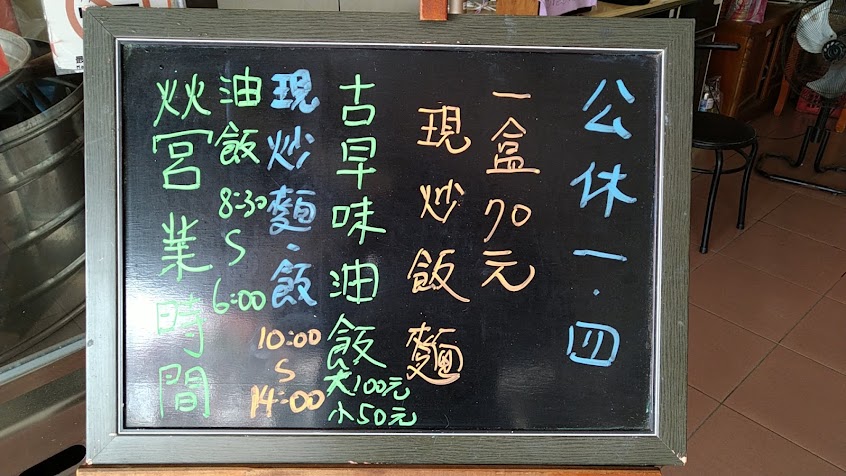 公休一.四
一盒70元
現炒飯麵
古早味油飯
大100元
小50元
現炒麵.飯
10:00
S
14:00
油飯
8:30
S
6:00
營業時間